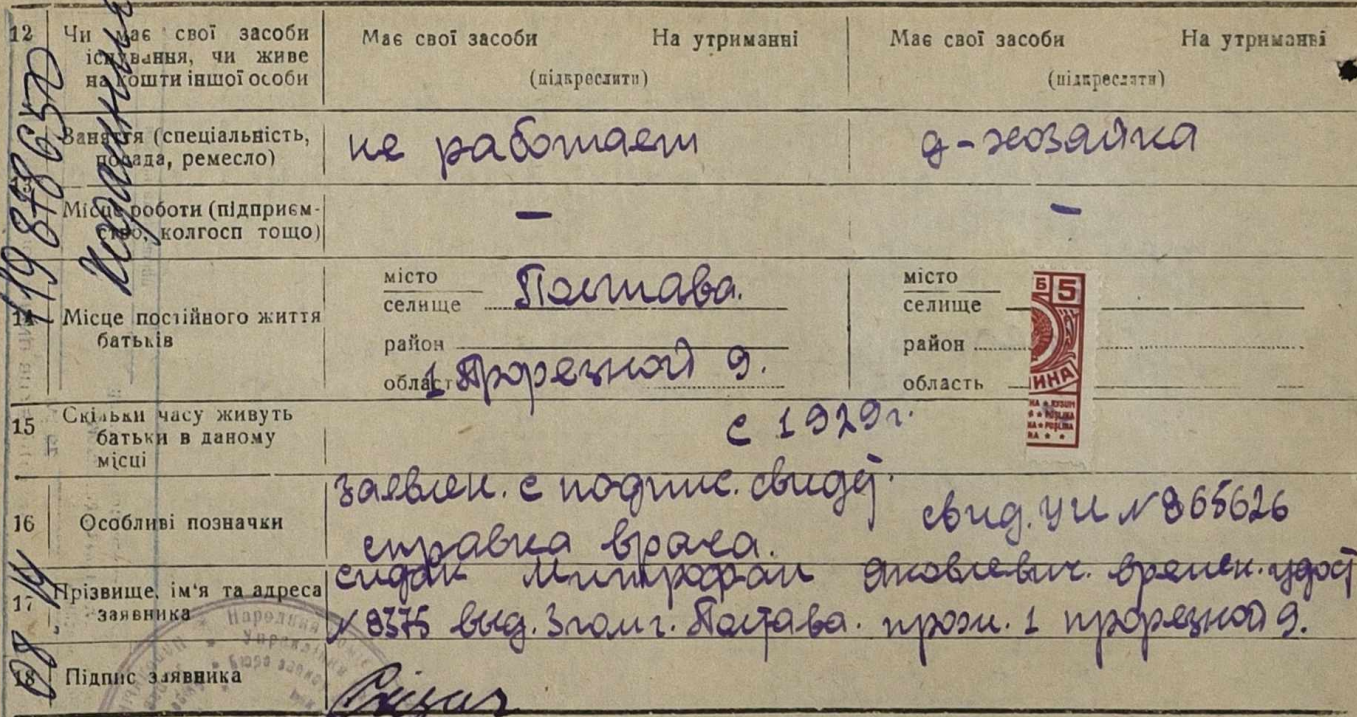 12 Чи має свої засоби існування, чи живе на кошти іншої особи
Має свої засоби На утриманні
(підкреслити)
Має свої засоби На утриманні
(підкреслити)
Заняття (спеціальність, посада, ремесло)
не работает
д-хозяйка
Місце роботи (підприємство, колгосп тощо)
–
–
14 Місце постійного життя батьків
місто
селище Полтава.
район
область 1 Прорезной 9.
місто
селище
район
область
Б 5
ИНА
15 Скільки часу живуть батьки в даному місці
с 1929 г.
16 Особливі позначки
заявлен. с подпис. свидет.
справка врача.
свид. УИ № 865626
17 Прізвище, ім'я та адреса заявника
Сидак Митрофан Яковлевич. времен. удост
№ 9375 выд. 3 гом г. Полтава. прож. 1 прорезной 9.
18 Підпис заявника